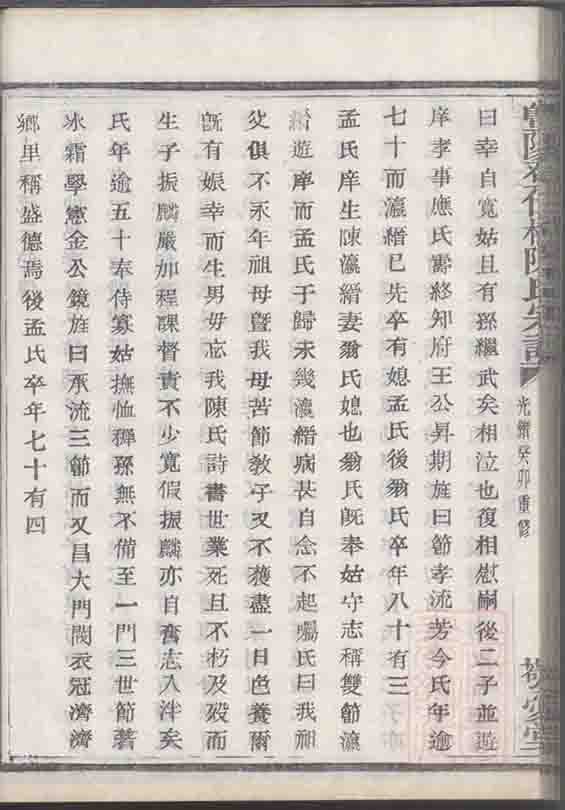 曰幸自寬姑且有孫繩武矣相泣也復相慰嗣後二子並遊
庠孝事應氏壽終知府王公昇期旌曰節孝流芳今氏年逾
七十而瀛縉已先卒有媳孟氏後翁氏卒年八十有三
孟氏庠生陳瀛縉妻翁氏媳也翁氏旣奉姑守志稱雙節瀛
縉遊庠而孟氏于歸未幾瀛縉病甚自念不起囑氏曰我祖
父俱不永年祖母暨我母苦節敎子又不獲盡一日色養爾
旣有娠幸而生男毋忘我陳氏詩書世業死且不朽及歿而
生子振麟嚴加程課督責不少寬假振麟亦自奮志入泮矣
氏年逾五十奉侍寡姑撫恤穉孫無不備至一門三世節著
冰霜學憲金公鏡旌曰承流三節而又昌大門閥衣冠濟濟
鄉里稱盛德焉後孟氏卒年七十有四
陳氏宗譜
光緒癸卯重修